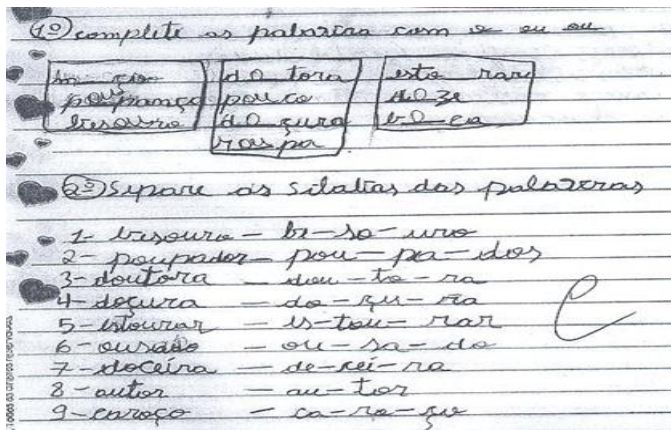 1º) complete as palavras com o ou ou
poupança
besouro
do tora
pouco
do çura
rouspa
esto rar
do ze
bo ca
2º) Separe as silabas das palavras
1- besouro - be-so-uro
2- poupador - pou-pa-dos
3- doutora - dou-to-ra
4- doçura - do-çu-ra
5- estourar - es-tou-rar
6- ousado - ou-sa-do
7- doceira - de-cei-ra
8- autor - au-tor
9- caroço - ca-ro-ço